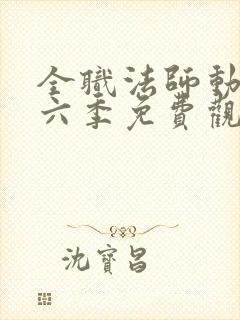 全職法師動
六季免費觀
沈寶昌